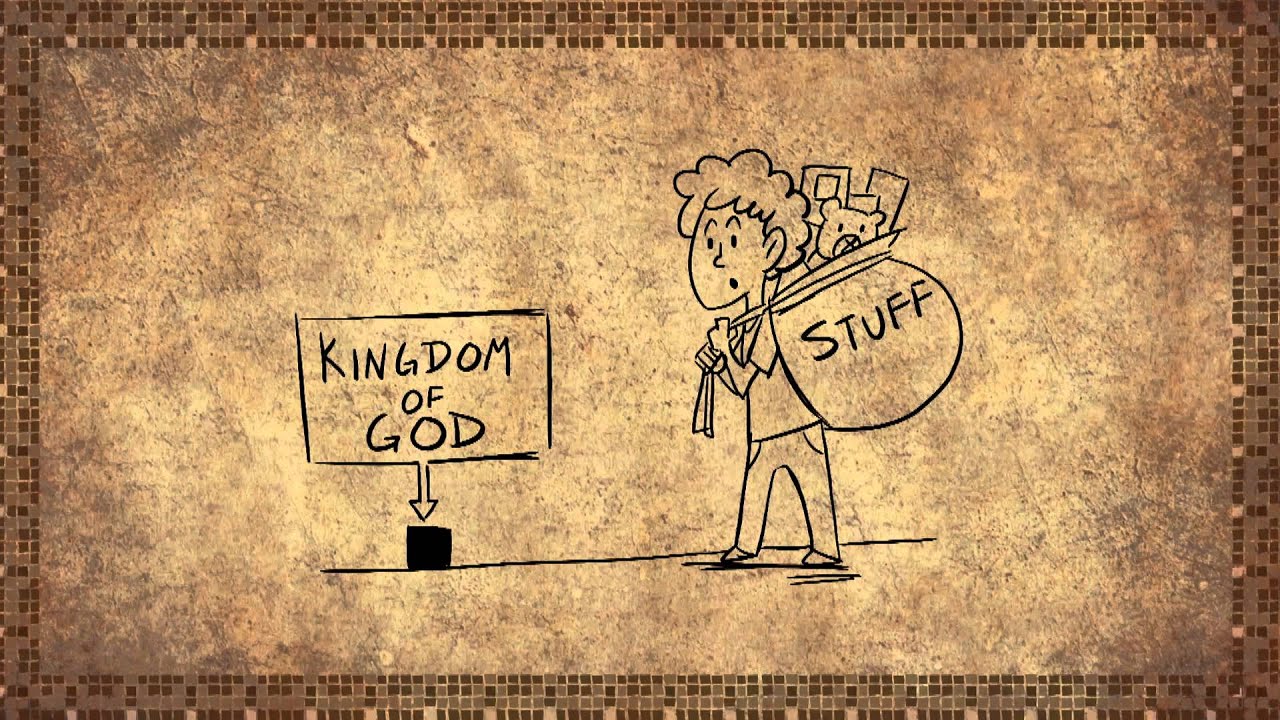 KINGDOM
OF
GOD
STUFF